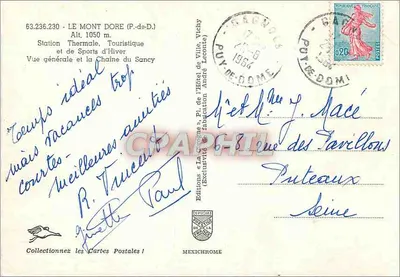 63.236.230 - LE MONT DORE (P.-de-D.)
Alt. 1050 m.
Station Thermale, Touristique
et de Sports d'Hiver
Vue générale et la Chaîne du Sancy
Temps idéal
mais vacances trop
courtes.
Meilleures amitiés
R.
Paul
Collectionnez les Cartes Postales !
MEXICHROME
Éditions
Pl. de l'Hôtel de Ville, Vichy
fabrication André Leconte)
17
-8
1964
PUY-DE-DOME
PUY-DE-DOM
0,20
M. et Mme J. Macé
6-8 rue des Pavillons
Puteaux
Seine
PIPHILA